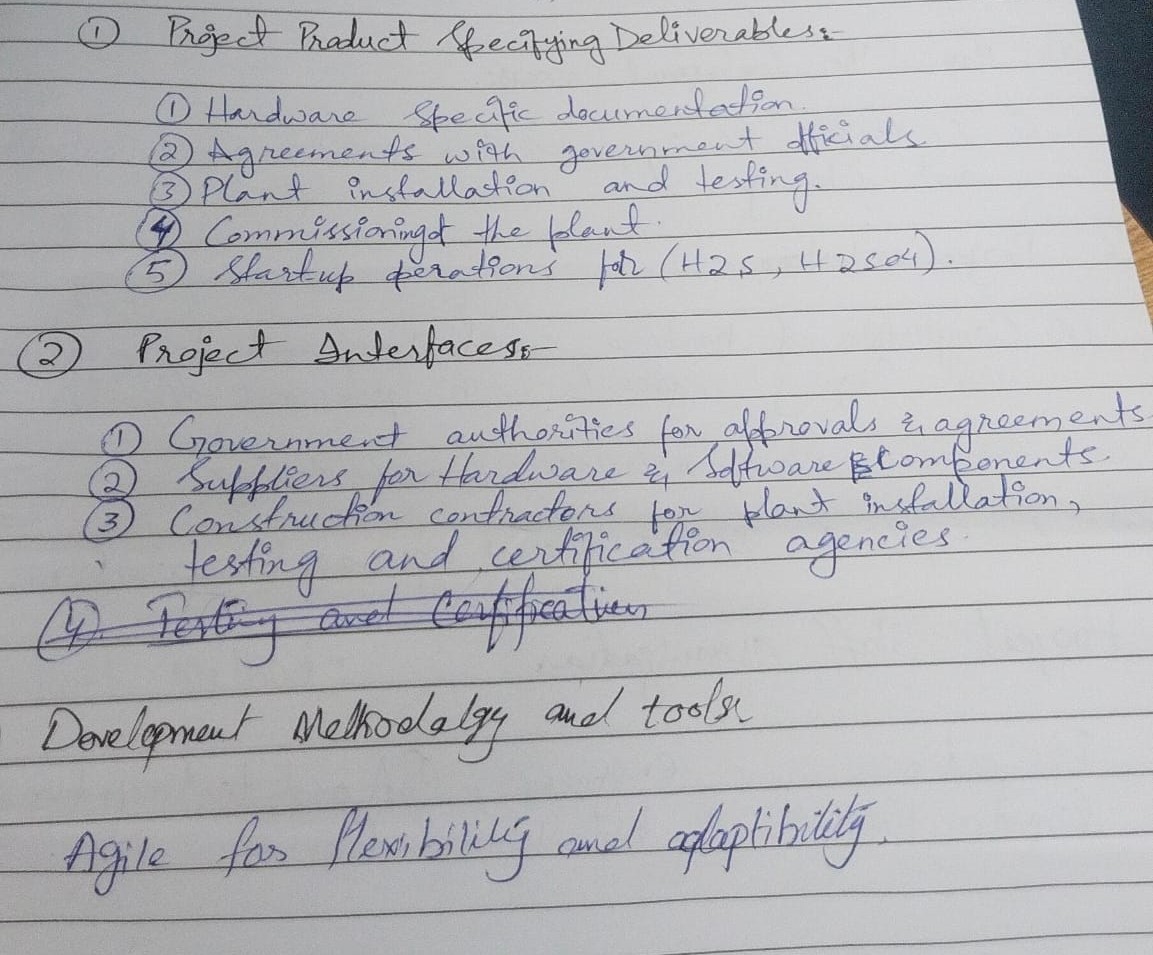 ① Project Product Specifying Deliverables:-
① Hardware Specific documentation.
② Agreements with government officials
③ Plant installation and testing.
④ Commissioning of the plant.
⑤ Startup operations for (H2S, H2SO4).
② Project Interfaces:-
① Government authorities for approvals & agreements
② Suppliers for Hardware & Software Components.
③ Construction contractors for plant installation,
testing and certification agencies.
④. Testing and Certification
Development Methodalgy and tools:
Agile for flexibility and adaptibility.